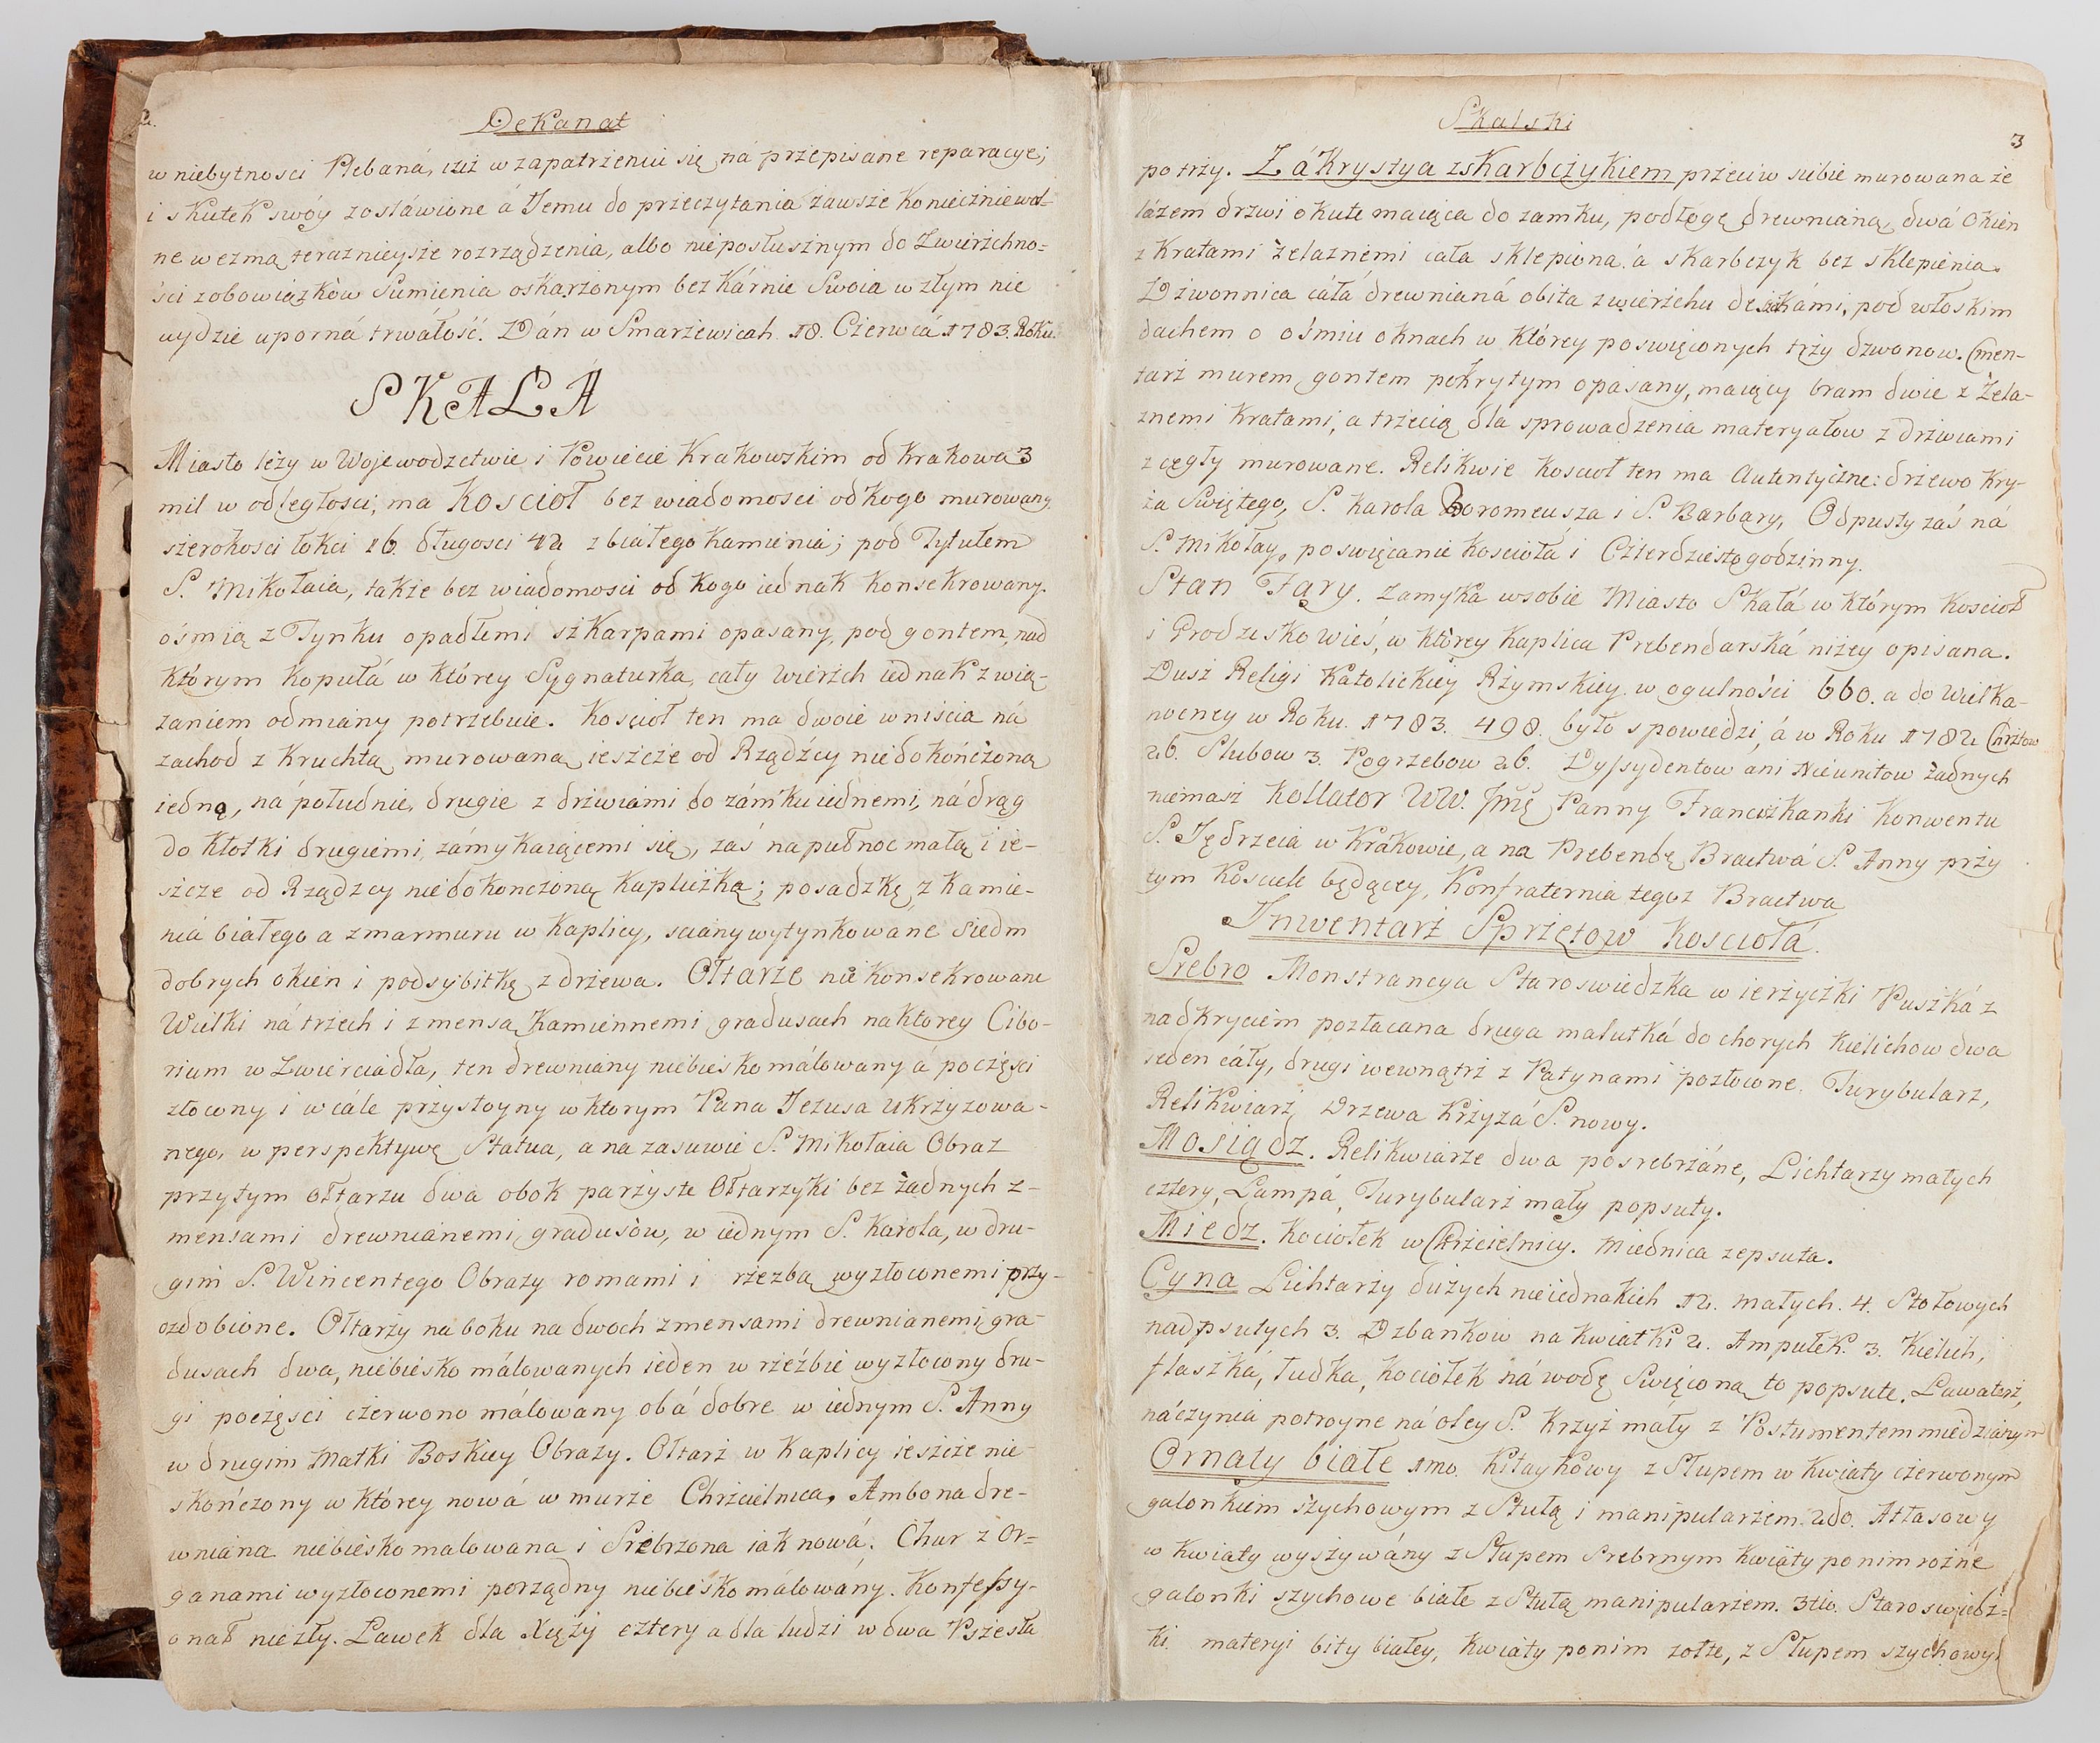 2.
Dekanat
w niebytnosci Plebaná, iuż w zapatrzeniu się ná przepisane reparacye;
i skutek swóy zostáwione á Jemu do przeczytania zawsze koniecznie wol-
ne wezmą teraznieysze rozrządzenia, albo nieposłusznym do Zwierzchno=
ści z obowiązków Sumienia oskarżonym bezkárnie Swoia w złym nie
uydzie uporná trwáłość. Dán w Smarzewicah 18. Czerwcá 1783. Roku.
SKALA
Miasto leży w Wojewodzctwie i Powiecie Krakowzkim od Krakowa 3
mil w odległosci; ma Koscioł bez wiadomosci od kogo murowany,
szerokosci łokci 16. długosci 42 z białego Kamienia; pod Tytułem
S. Mikołaia, takze bez wiadomosci od kogo iednak konsekrowany.
ośmią z Tynku opadłemi szkarpami opasany, pod gontem, nad
którym Kopułá w którey Sygnaturka, cały wierzch iednak z wią-
zaniem odmiany potrzebuie. Kościoł ten ma dwoie wniścia ná
zachod z Kruchtą murowaną ieszcze od Rządźcy niedokończoną
iedną, ná południe, drugie z drzwiami do zámku iednemi, ná drąg
do Kłotki drugiemi, zámykaiącemi się, zaś na pułnoc małą i ie-
szcze od Rządzcy niedokonczoną Kapliczką; posadzkę z kamie-
niá białego a z marmuru w Kaplicy, sciany wytynkowáne Siedm
dobrych okien i podsybitkę z drzewa. Ołtarze nie konsekrowane
Wielki ná trzech i z mensą Kamiennemi gradusach na ktorey Cibo-
rium w Zwierciadła, ten drewniany niebiesko málowany á poczęsci
złocony i w cále przystoyny w ktorym Pana Jezusa ukrzyżowa-
nego, w perspektywę Statua, a na zasuwie S. Mikołaia Obraz
przytym ołtarzu dwa obok parzyste Ołtarzyki bez żadnych z-
mensami drewnianemi, gradusów, w iednym S. Karola, w dru-
gim S. Wincentego Obrazy romami i rzezbą wyzłoconemi przy-
ozdobione. Ołtarzy na boku na dwoch z mensami drewnianemi gra-
dusach dwa, niebiesko málowanych ieden w rzeźbie wyzłocony dru-
gi poczęsci czerwono málowany obá dobre w iednym S. Anny
w drugim Matki Boskiey Obrazy. Ołtarz w Kaplicy ieszcze nie-
skończony w którey nowá w murze Chrzcielnica, Ambona dre-
wniána niebiesko malowana i Srebrzona iak nowá. Chur z Or=
ganami wyzłoconemi porządny niebiesko málowány. Konfessy-
onał niezły. Ławek dla Xięży cztery a dla ludzi w dwa Pszesła
Skalski
3
potrzy. Zákrystya z skarbczykiem przeciw siebie murowana że
lázem drzwi okute maiąca do zamku, podłogę drewnianą, dwá Okien
z Kratami żelaznemi cała sklepiona á skarbczyk bez sklepienia.
Dzwonnica cáłá drewnianá obita z wierzchu deskámi, pod włoskim
dachem o ośmiu oknach w którey poswięconych trzy dzwonow. Cmen-
tarz murem gontem pokrytym opasany, maiący bram dwie z Żela-
znemi kratami, a trzecią dla sprowadzenia materyałow z drzwiami
z cegły murowane. Relikwie koscioł ten ma Autentyczne: drzewo Kry-
ża Swiętego, S. Karola Boromeusza i S. Barbary, Odpusty zaś ná
S. Mikołay, poswięcanie kosciołá i Czterdziestogodzinny.
Stan Fary. Zamyka w sobie Miasto Skałá w którym koscioł
i Grodzisko wieś, w którey kaplica Prebendarská niżey opisana.
Dusz Religi Katolickiey Rzymskiey w ogulności 660. a do Wielka-
nocney w Roku. 1783. 498. było spowiedzi, á w Roku 1782 Chrztow
26. Slubow 3. Pogrzebow 26. Dyssydentow ani Nieunitow żadnych
niemasz Kollator WW. Jmę Panny Franciszkanki Konwentu
S. Jędrzeia w Krákowie, a na Prebendę Bractwá S. Anny przy
tym Kosciele będącey, Konfraternia tegoz Bractwa
Inwentarz Sprzętow Kosciołá.
Srebro Monstrancya Staroswiedzka w ierzyczki Puszká z
nadkryciem pozłacana druga malutká do chorych Kielichow dwa
ieden cáły, drugi wewnątrz z Patynami pozłocone. Turybularz,
Relikwiarz Drzewa Krzyżá S. nowy.
Mosiądz. Relikwiarze dwa posrebrzáne, Lichtarzy małych
cztery, Lampá, Turybularz mały popsuty.
Miedz. Kociołek w Chrzcielnicy. Miednica zepsuta.
Cyna Lichtarzy dużych nieiednakich 12. małych. 4. Stołowych
nadpsutych 3. Dzbankow na kwiatki 2. Ampułek. 3. Kielich,
flaszka, łudka, Kociołek ná wodę Swięconą to popsute. Lawaterz,
náczynia potroyne ná oley S. Krzyż mały z Postumentem miedzianym
Ornaty białe 1mo. Kitaykowy z Słupem w Kwiaty czerwonym
galonkiem szychowym z Stułą i manipularzem. 2do. Atłasowy
w kwiaty wyszywány z Słupem Srebrnym kwiaty po nim rożne
galonki szychowe białe z Stułą manipularzem. 3tio. Staroswiedz=
ki materyi bity białey, kwiaty ponim zołte, z Słupem